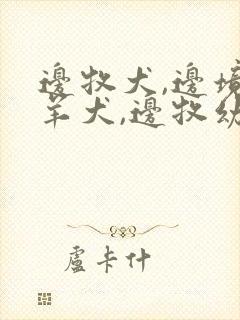 邊牧犬,邊境
羊犬,邊牧幼
盧卡什